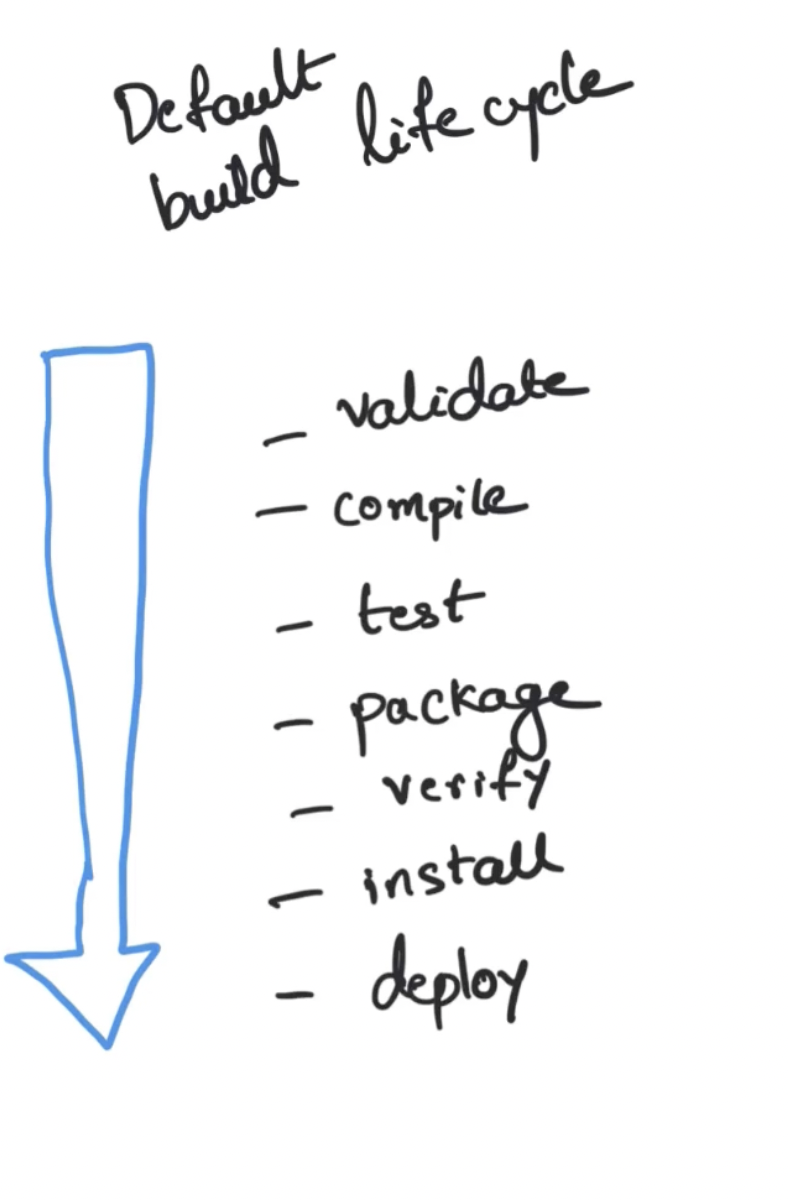 Default life cycle
build
- validate
- compile
- test
- package
- verify
- install
- deploy